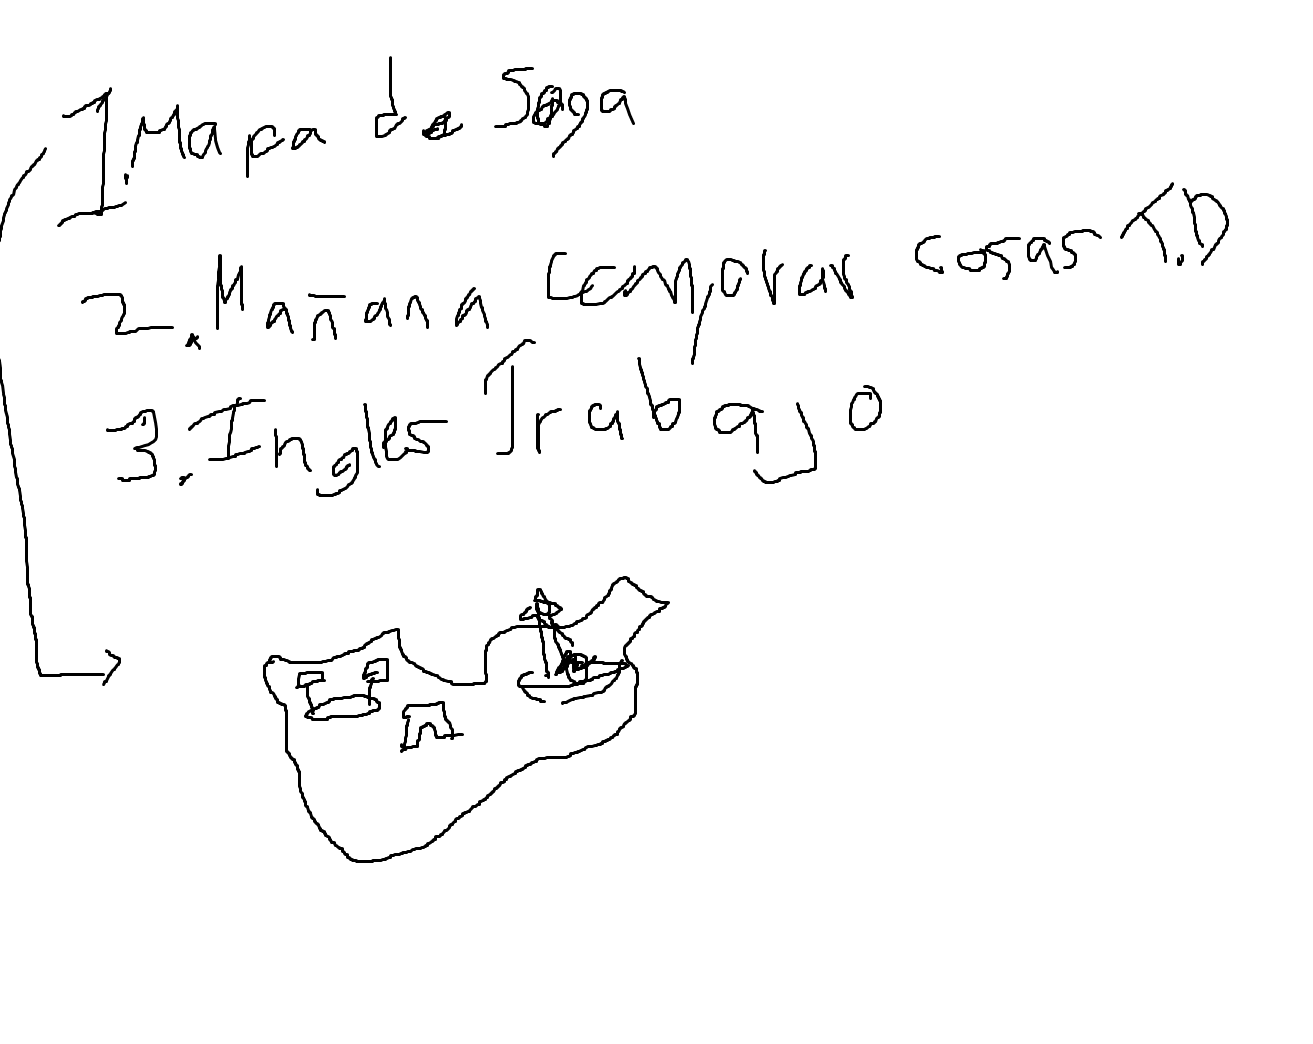 1. Mapa de Saga
2. Mañana comprar cosas T.D
3. Ingles Trabajo